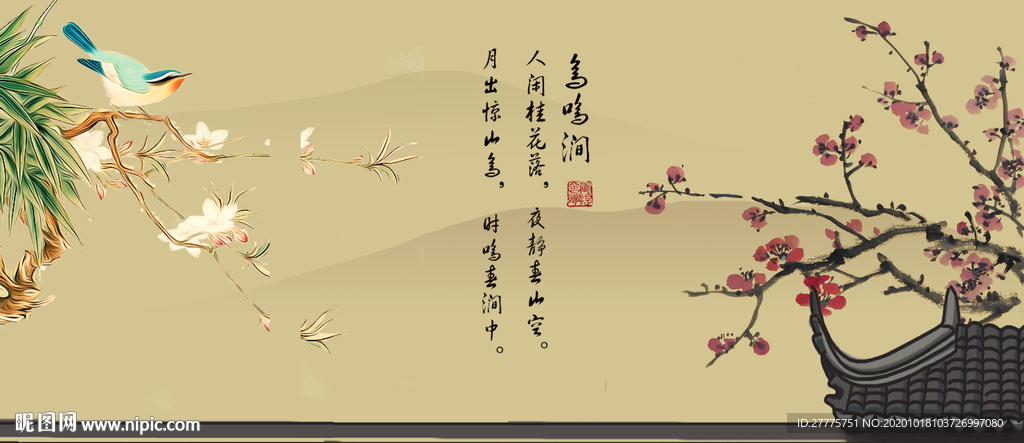 鸟鸣涧
人闲桂花落，夜静春山空。
月出惊山鸟，时鸣春涧中。
昵图网 www.nipic.com
ID:27775751 NO:20201018103726997080